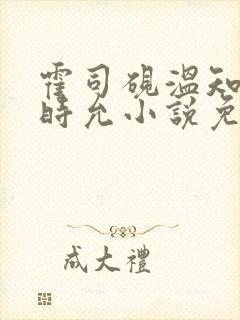 霍司砚温知
時允小説免
成大禮